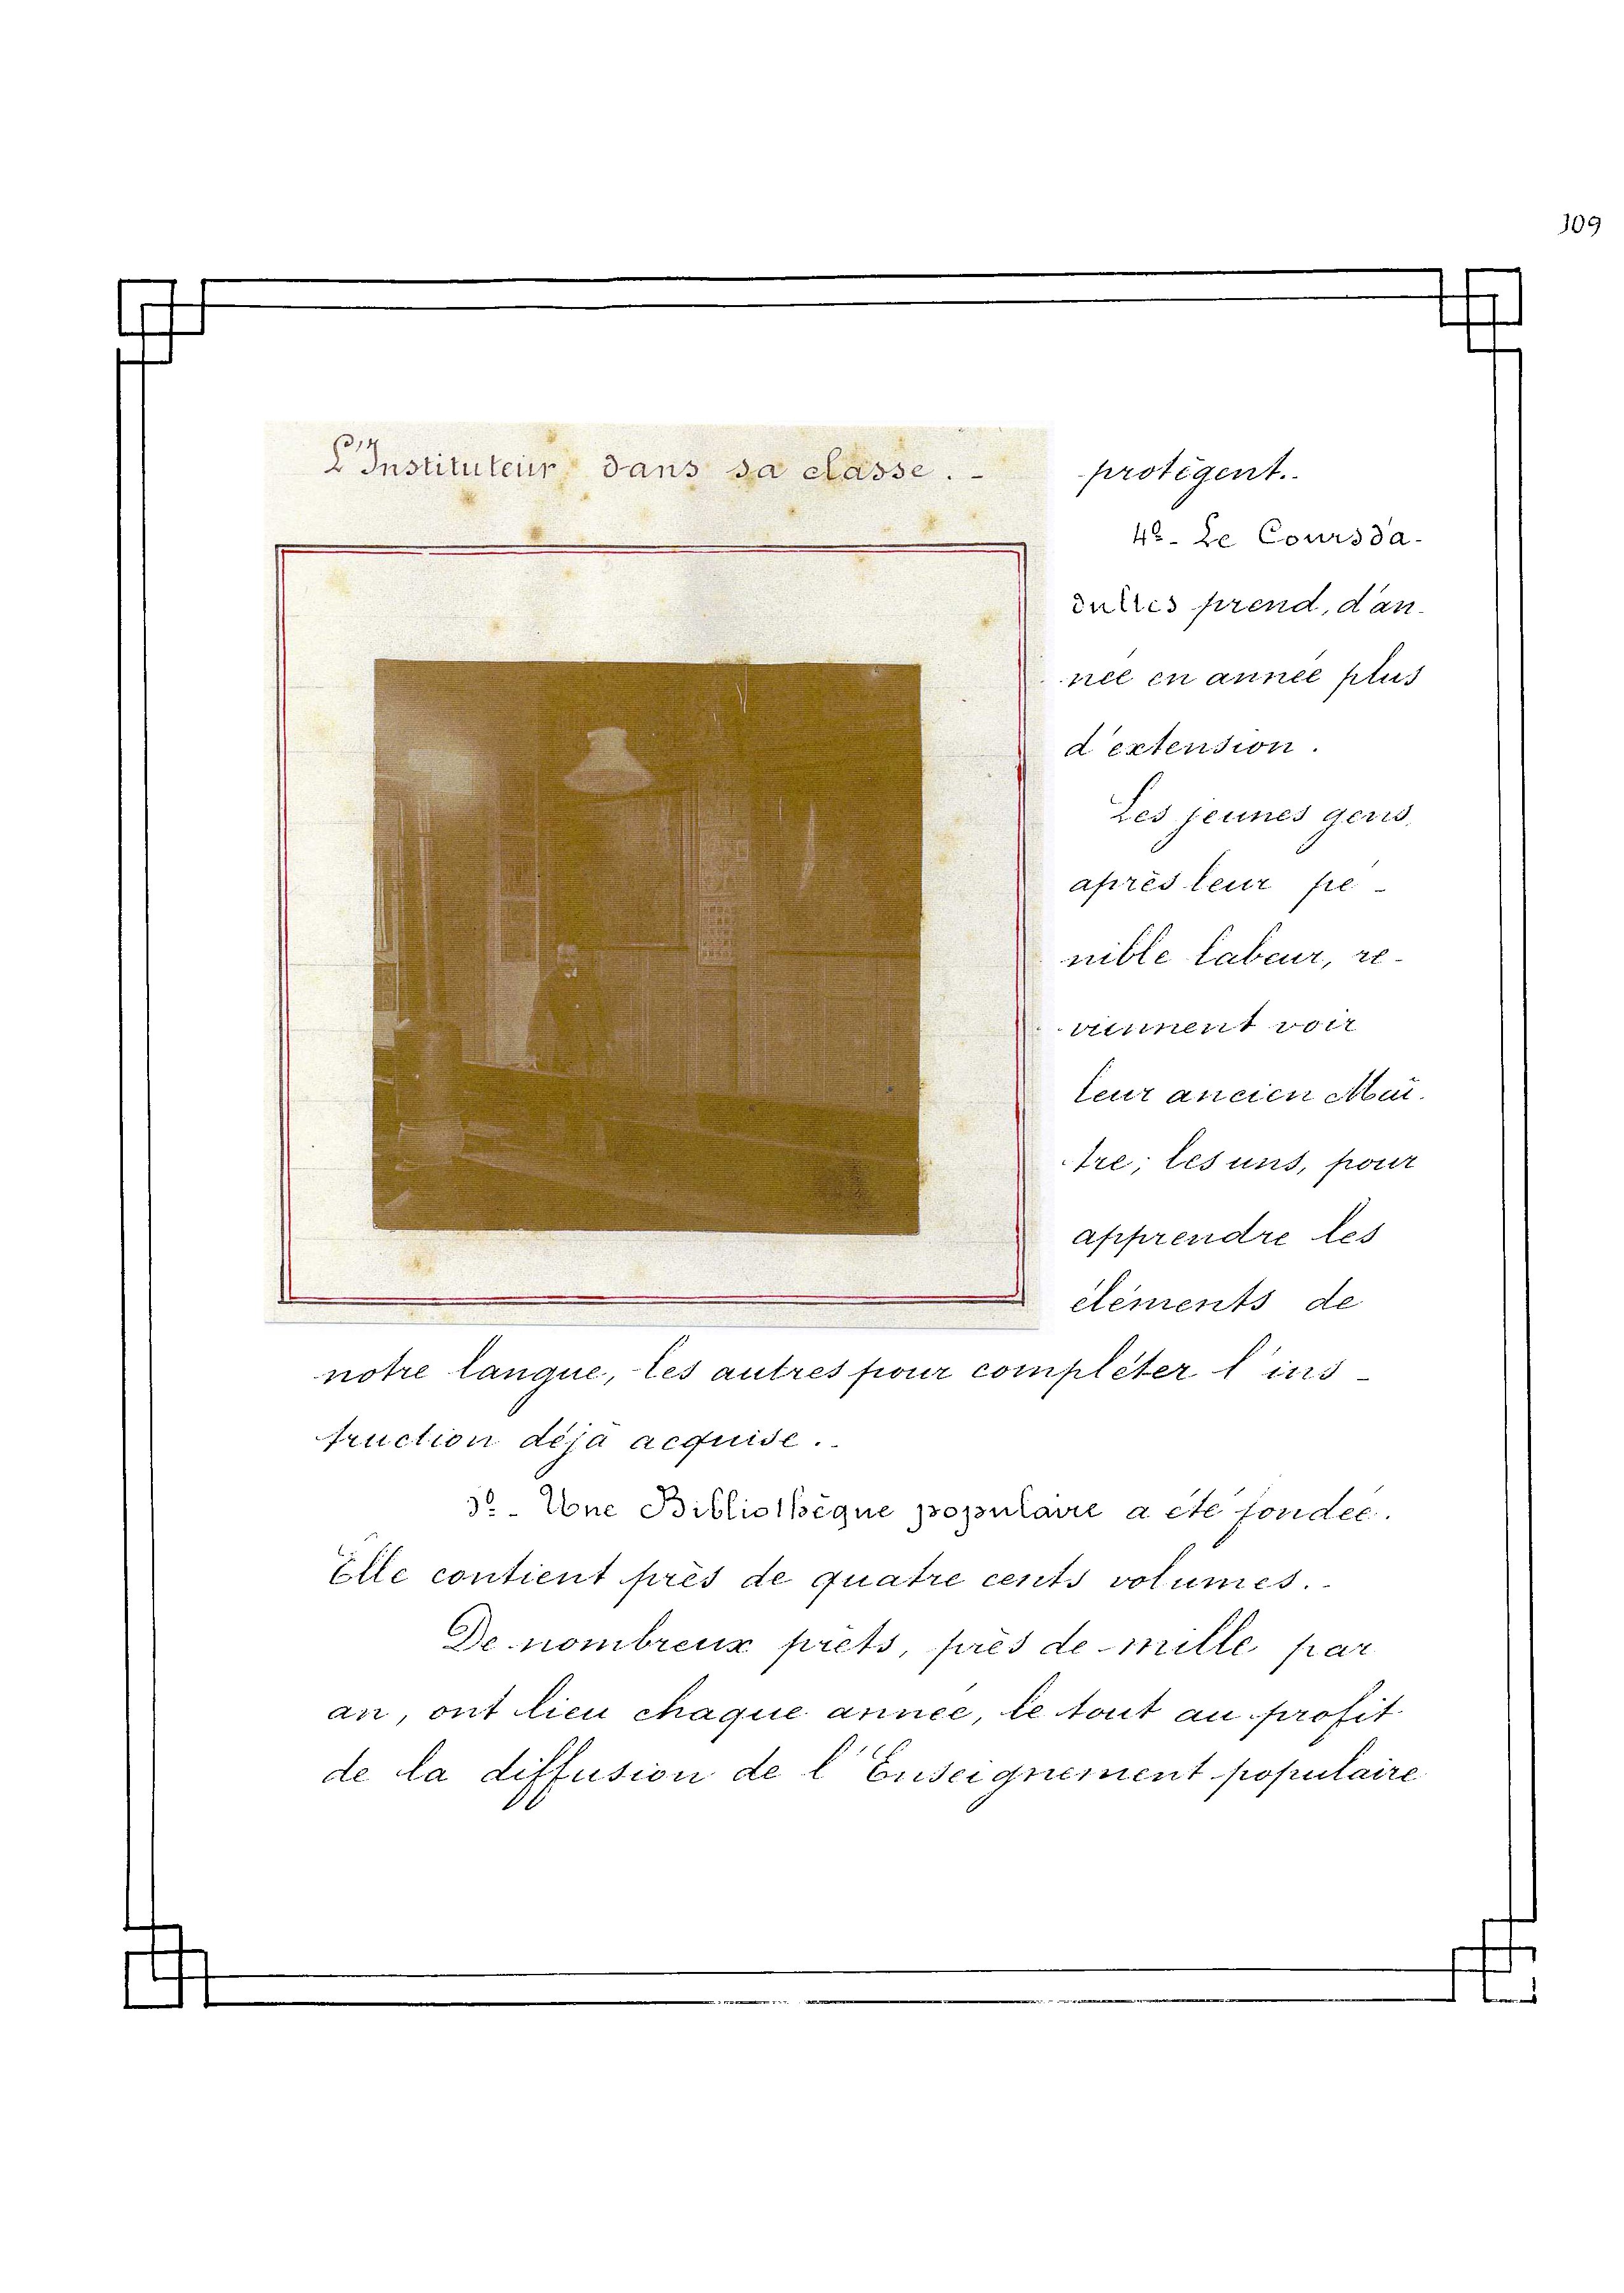 109
L'Instituteur dans sa classe. -
protègent. -
4º - Le Cours d'a-
dultes prend, d'an-
née en année plus
d'extension.
Les jeunes gens,
après leur pé-
nible labeur, re-
viennent voir
leur ancien Maî-
tre; les uns, pour
apprendre les
éléments de
notre langue, les autres pour compléter l'ins-
truction déjà acquise. -
5º - Une Bibliothèque populaire a été fondée.
Elle contient près de quatre cents volumes. -
De nombreux prêts, près de mille par
an, ont lieu chaque année, le tout au profit
de la diffusion de l'Enseignement populaire